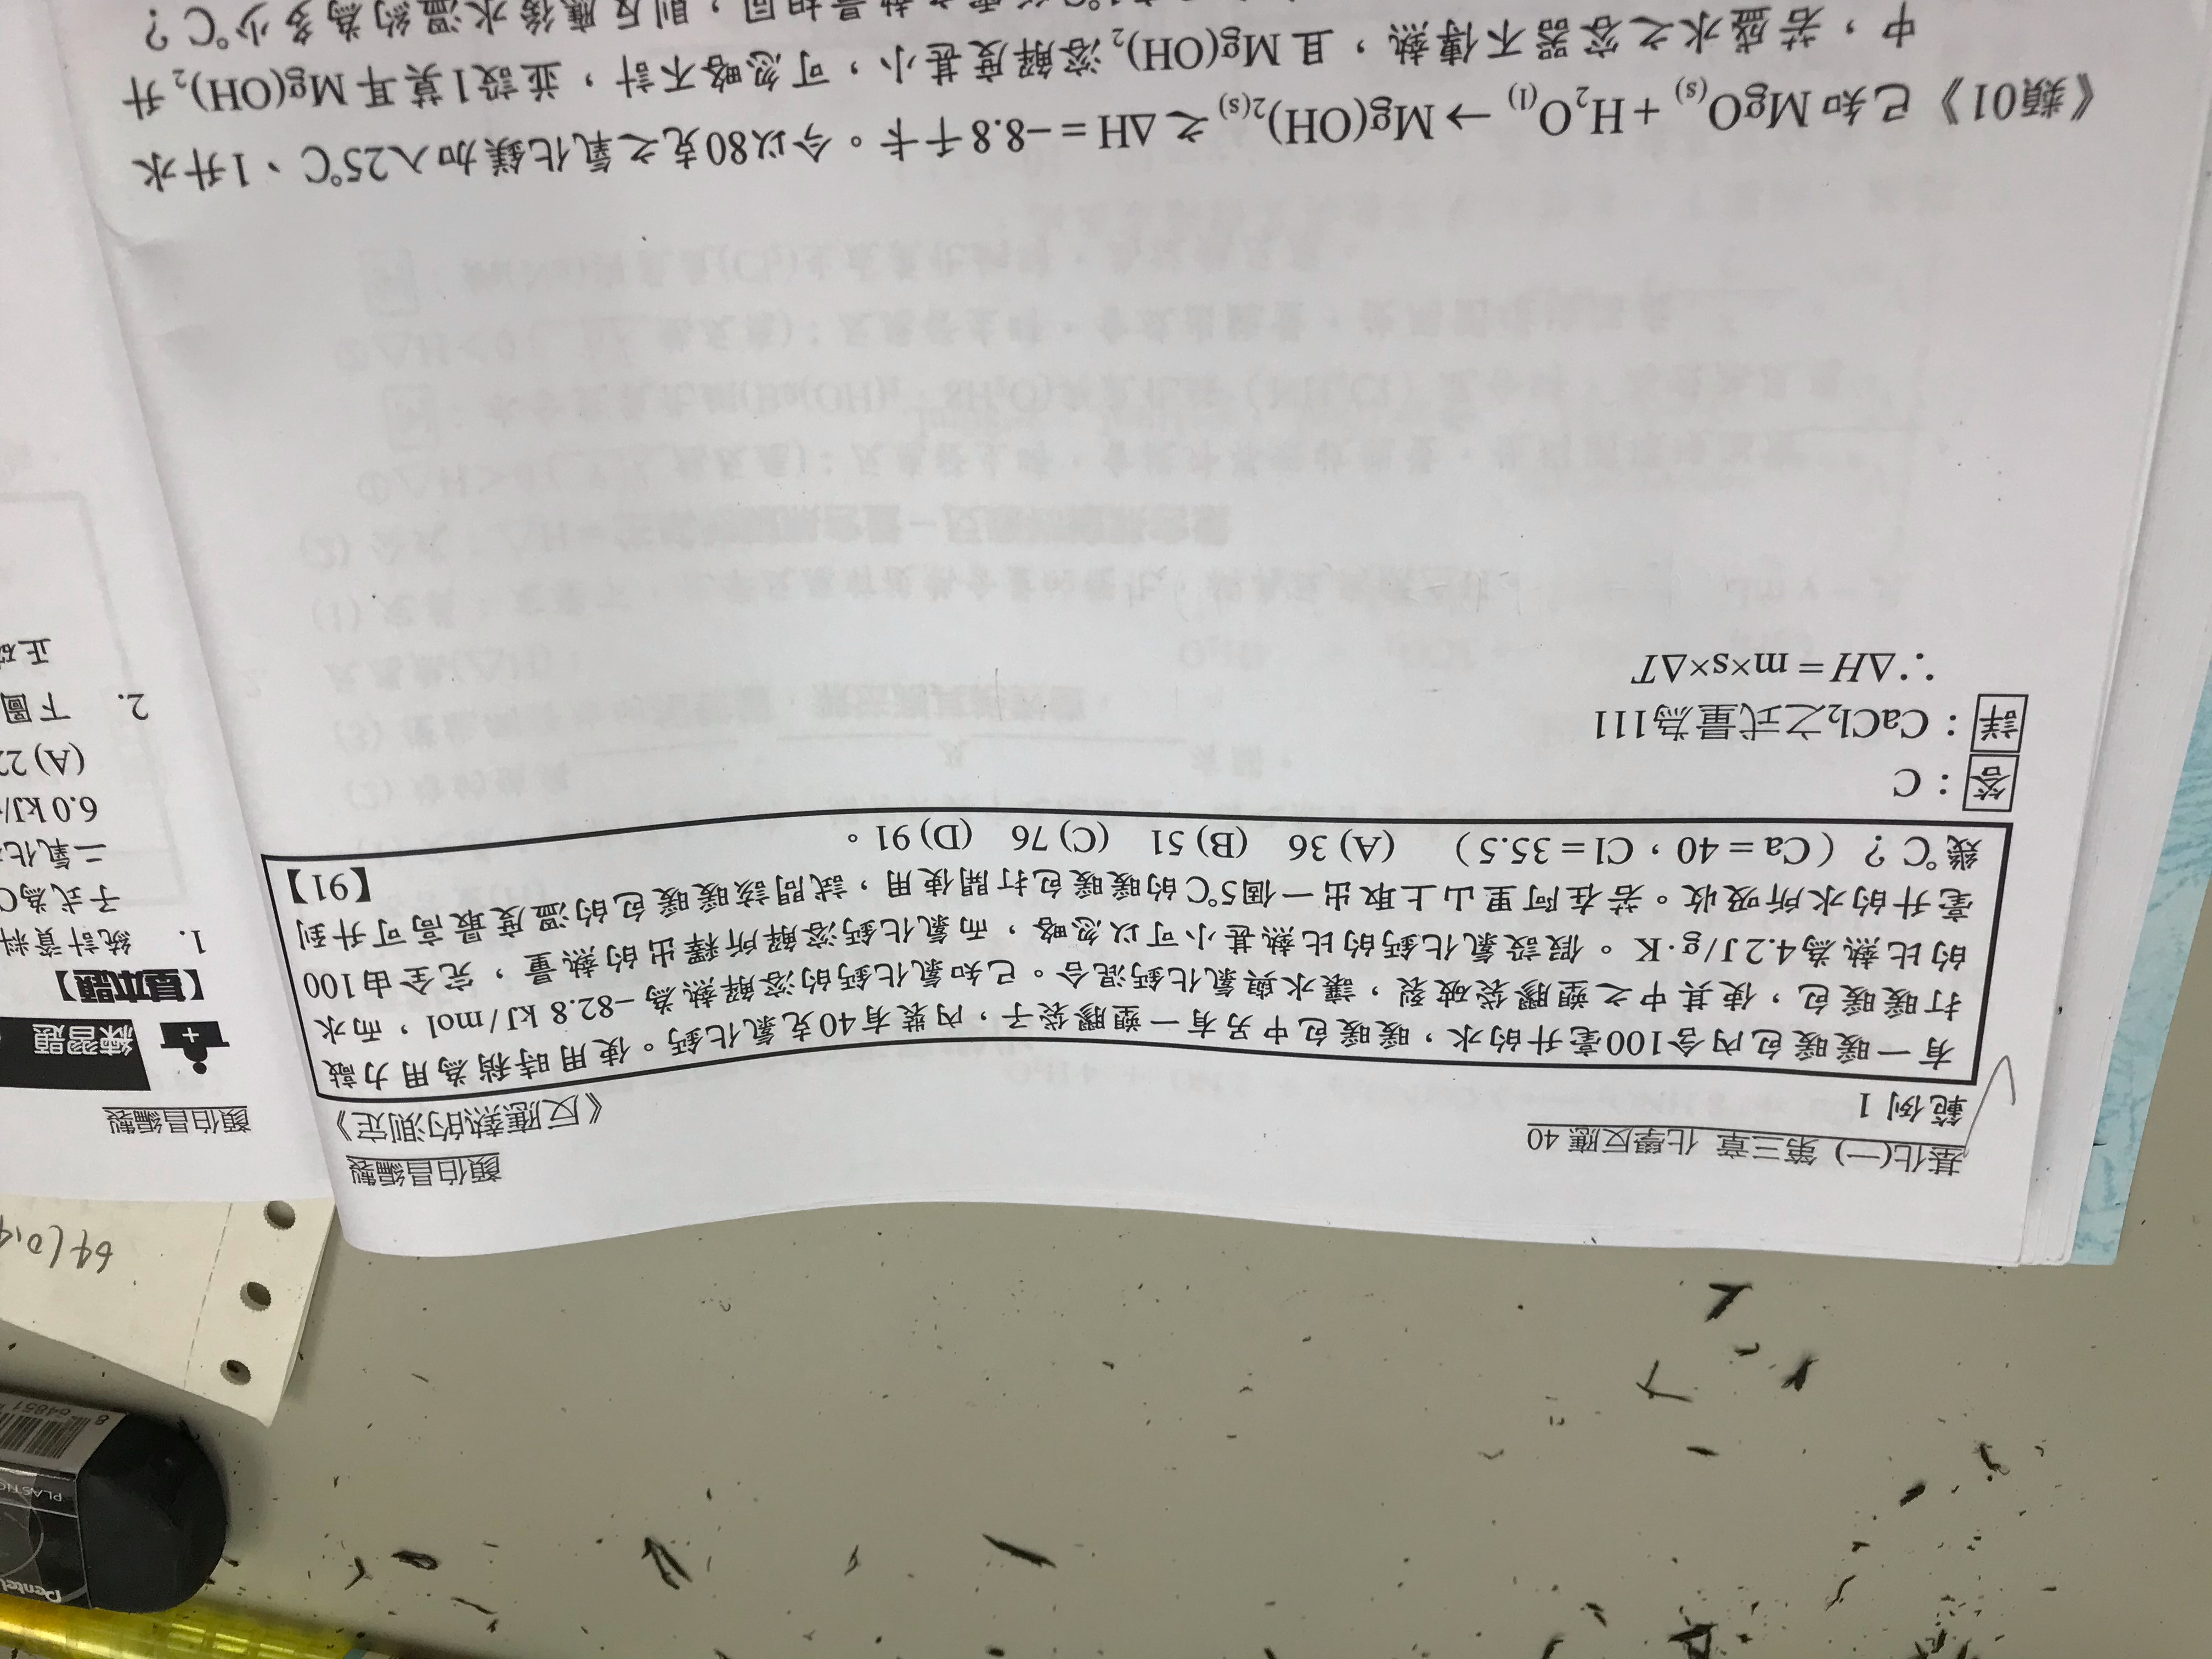 基化(一) 第三章 化學反應 40
顏伯昌編製
範例 1
《反應熱的測定》
有一暖暖包內含100毫升的水，暖暖包中另有一塑膠袋子，內裝有40克氯化鈣。使用時稍為用力敲
打暖暖包，使其中之塑膠袋破裂，讓水與氯化鈣混合。已知氯化鈣的溶解熱為 –82.8 kJ/mol，而水
的比熱為4.2 J/g·K。假設氯化鈣的比熱甚小可以忽略，而氯化鈣溶解所釋出的熱量，完全由100
毫升的水所吸收。若在阿里山上取出一個5℃的暖暖包打開使用，試問該暖暖包的溫度最高可升到
幾℃？（Ca = 40，Cl = 35.5） (A) 36 (B) 51 (C) 76 (D) 91。
【91】
答：C
詳：CaCl₂之式量為111
∴ΔH = m×s×ΔT
《類01》已知 MgO(s) + H₂O(l) → Mg(OH)₂(s) 之 ΔH = –8.8 千卡。今以80克之氧化鎂加入25℃、1升水
中，若盛水之容器不傳熱，且 Mg(OH)₂ 溶解度甚小，可忽略不計，並設1莫耳 Mg(OH)₂ 升
熱量相同，則反應後水溫約為多少℃？
顏伯昌編製
練習題
【基本題】
1. 統計資料
子式為C
二氧化
6.0 kJ/
(A) 22
2. 下圖
正確
64(0.4
PLASTIC
Pentel